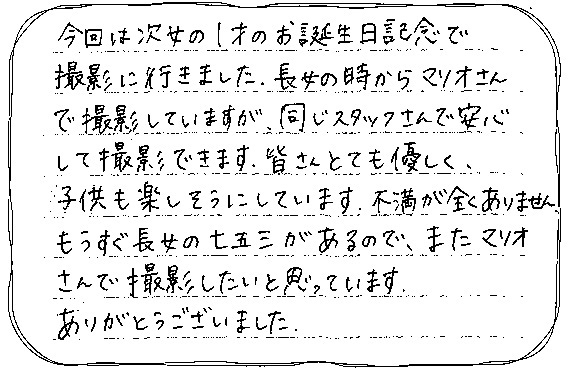 今回は次女の1才のお誕生日記念で
撮影に行きました。長女の時からマリオさん
で撮影していますが、同じスタッフさんで安心
して撮影できます。皆さんとても優しく、
子供も楽しそうにしています。不満が全くありません。
もうすぐ長女の七五三があるので、またマリオ
さんで撮影したいと思っています。
ありがとうございました。